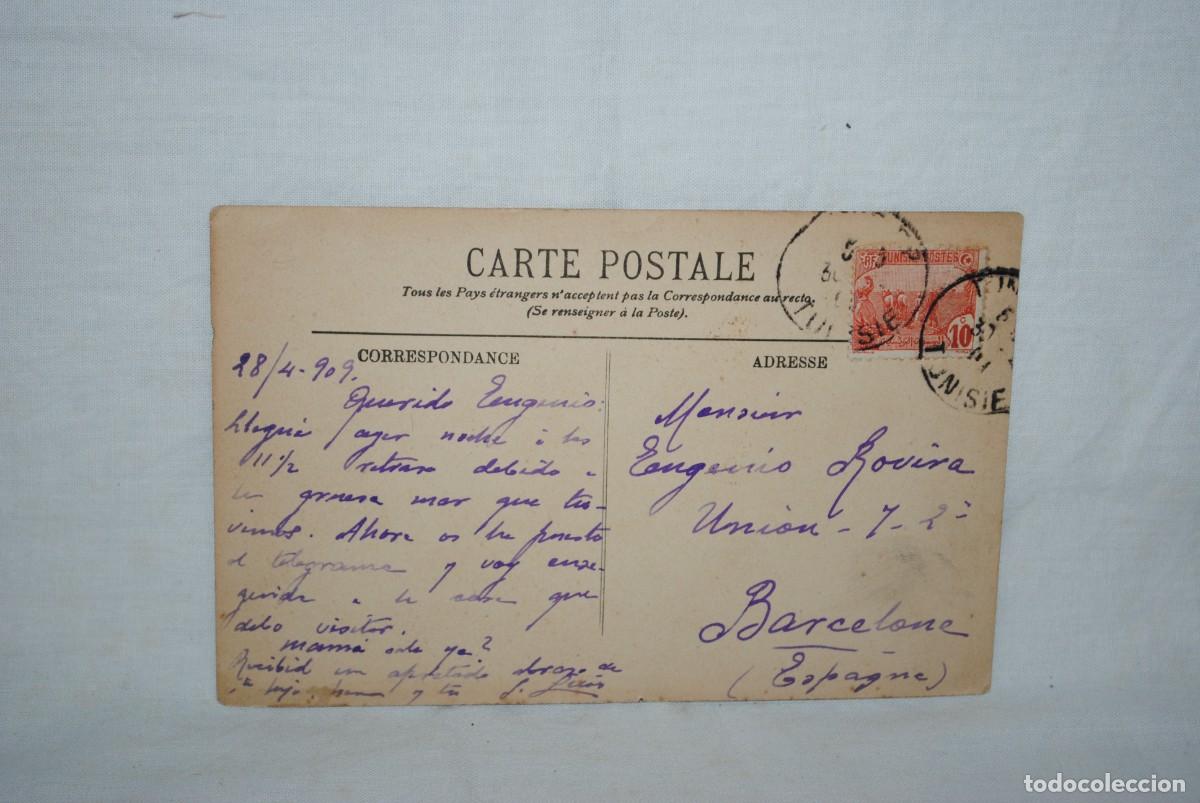 CARTE POSTALE
Tous les Pays étrangers n'acceptent pas la Correspondance au recto.
(Se renseigner à la Poste).
CORRESPONDANCE
28/4-909.
Querido Eugenio:
Llegué ayer noche á las
11 1/2 retraso debido a
la gruesa mar que tu-
vimos. Ahora os he puesto
el telegrama y voy ense-
guida a la casa que
debo visitar.
mamá sale ya?
Recibid un apretado abrazo de
hijo y tio J.
ADRESSE
Monsieur
Eugenio Rovira
Unión - 7 - 2º
Barcelone
(Espagne)
RF TUNISIE POSTES
10
TUNISIE
TUNISIE
todocoleccion